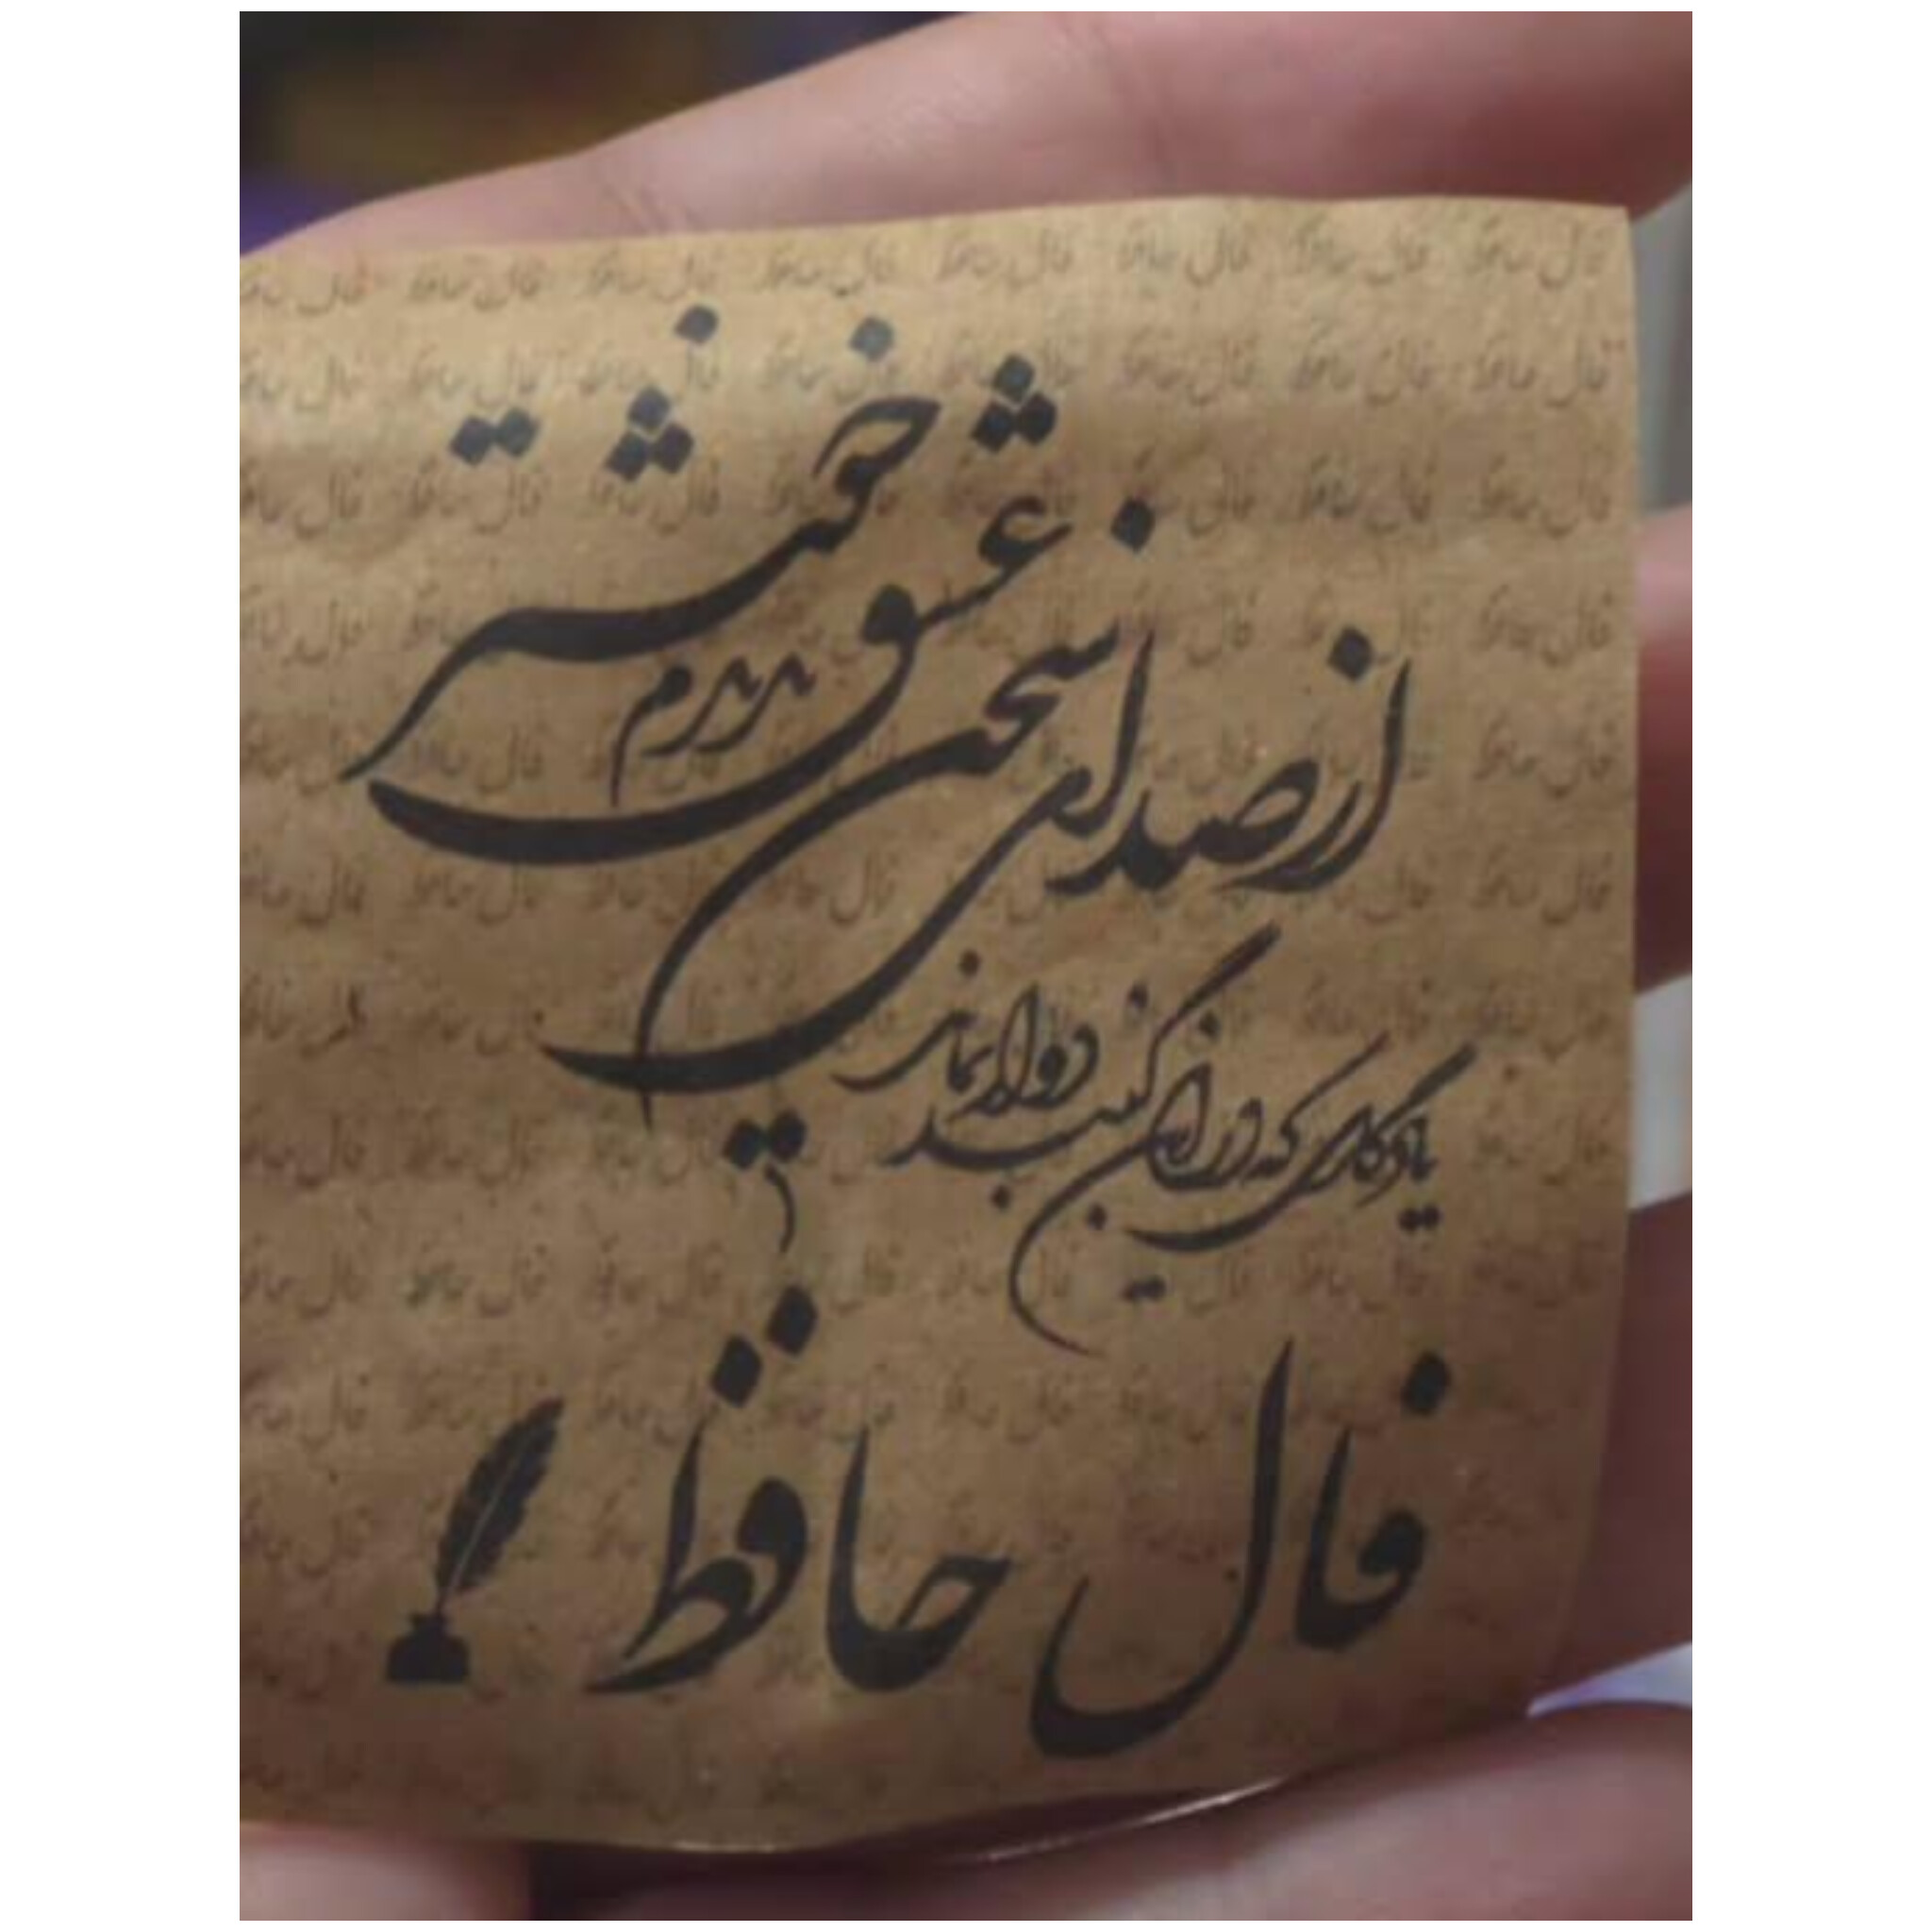 از صدای سخن عشق ندیدم خوشتر
یادگاری که در این گنبد دوار بماند
فال حافظ